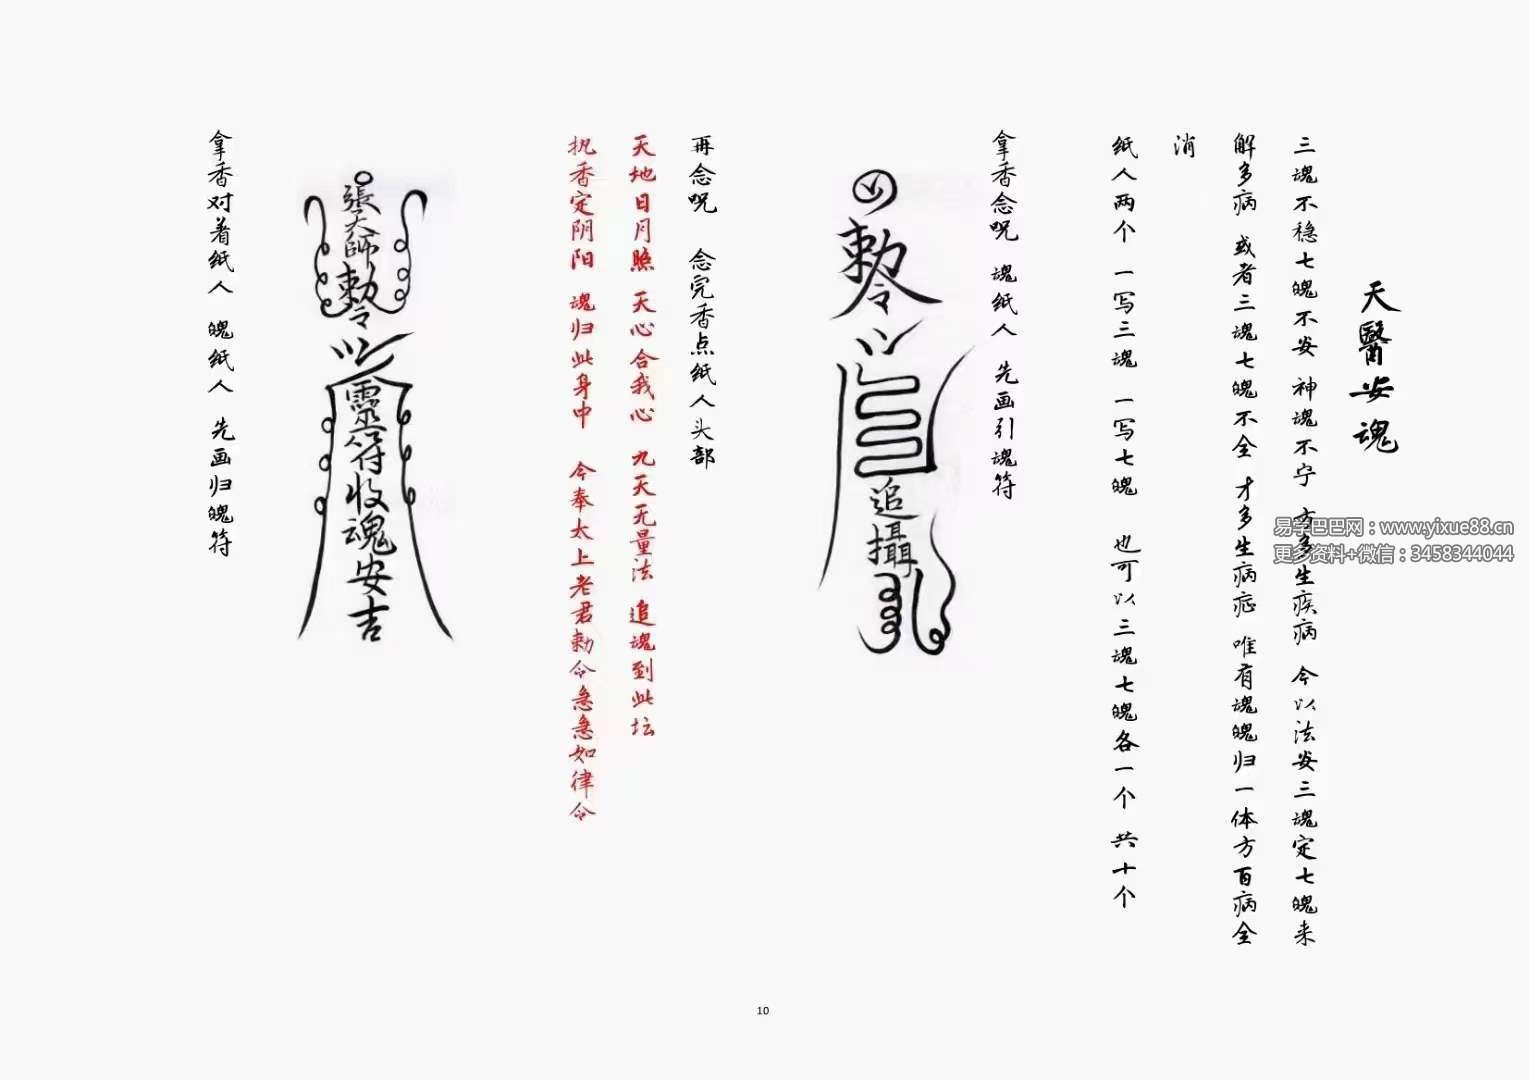 天醫安魂
三魂不稳七魄不安 神魂不宁 方多生疾病 今以法安三魂定七魄来
解多病 或者三魂七魄不全 才多生病症 唯有魂魄归一体方百病全
消
纸人两个 一写三魂 一写七魄 也可以三魂七魄各一个 共十个
拿香念咒 魂纸人 先画引魂符
勅令
追攝
再念咒 念完香点纸人头部
天地日月照 天心合我心 九天无量法 追魂到此坛
执香定阴阳 魂归此身中 今奉太上老君勅令急急如律令
張天師勅令
靈符收魂安吉
拿香对着纸人 魄纸人 先画归魄符
易学巴巴网：www.yixue88.cn
更多资料+微信：3458344044
10